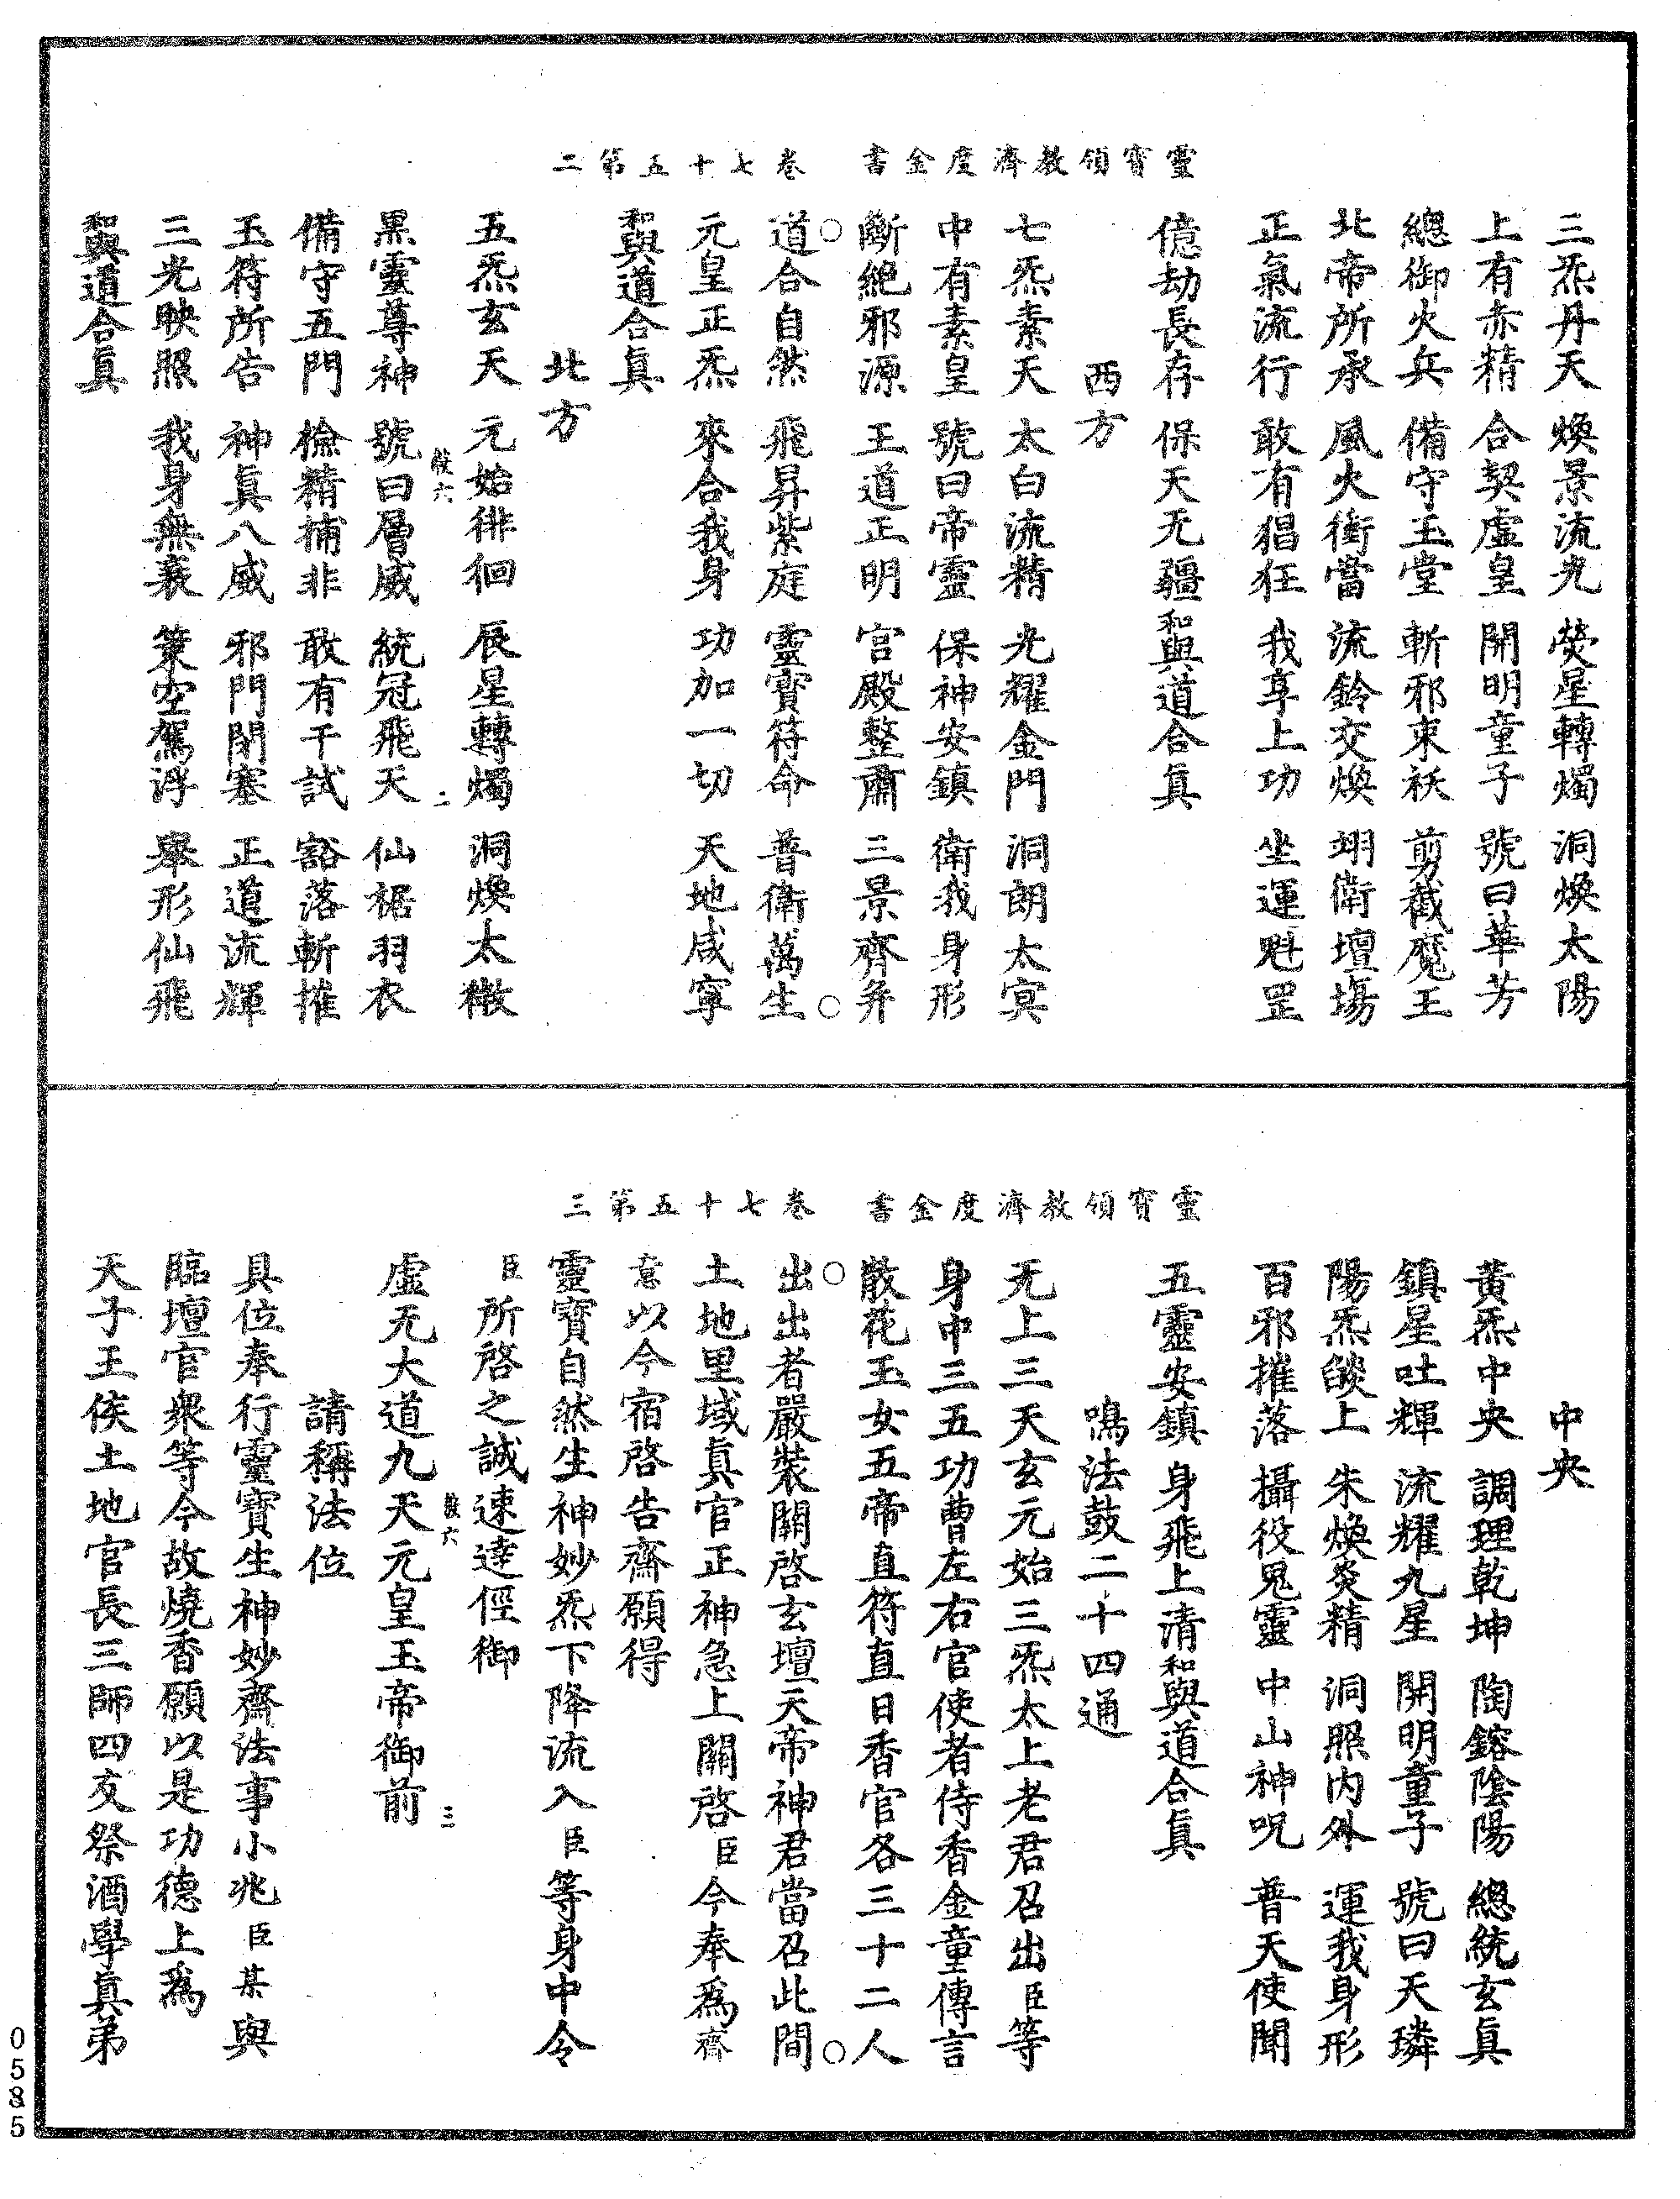 靈寶領教濟度金書　卷七十五第二
三炁丹天　煥景流光　熒星轉燭　洞煥太陽
上有赤精　合契虛皇　開明童子　號曰華芳
總御火兵　備守玉堂　斬邪束祅　剪截魔王
北帝所承　風火衝當　流鈴交煥　翊衛壇場
正氣流行　敢有猖狂　我享上功　坐運魁罡
億劫長存　保天无疆和與道合真
西方
七炁素天　太白流精　光耀金門　洞朗太冥
中有素皇　號曰帝靈　保神安鎮　衛我身形
斷絕邪源　王道正明　宮殿整肅　三景齊并
道合自然　飛昇紫庭　靈寶符命　普衛萬生
元皇正炁　來合我身　功加一切　天地咸寧
和與道合真
北方
五炁玄天　元始徘徊　辰星轉燭　洞煥太微
黑靈尊神　號曰層威　統冠飛天　仙裾羽衣
備守五門　檢精捕非　敢有干試　豁落斬摧
玉符所告　神真八威　邪門閉塞　正道流輝
三光映照　我身無衰　策空駕浮　舉形仙飛
和與道合真
靈寶領教濟度金書　卷七十五第三
中央
黃炁中央　調理乾坤　陶鎔陰陽　總統玄真
鎮星吐輝　流耀九星　開明童子　號曰天璘
陽炁燄上　朱煥炎精　洞照內外　運我身形
百邪摧落　攝役鬼靈　中山神呪　普天使聞
五靈安鎮　身飛上清和與道合真
鳴法鼓二十四通
无上三天玄元始三炁太上老君召出臣等
身中三五功曹左右官使者侍香金童傳言
散花玉女五帝直符直日香官各三十二人
出出者嚴裝關啓玄壇天帝神君當召此間
土地里域真官正神急上關啓臣今奉爲齋
意以今宿啓告齋願得
靈寶自然生神妙炁下降流入臣等身中令
臣所啓之誠速達徑御
虛无大道九天元皇玉帝御前
請稱法位
具位奉行靈寶生神妙齋法事小兆臣某與
臨壇官衆等今故燒香願以是功德上爲
天子王侯土地官長三師四友祭酒學真弟
0585